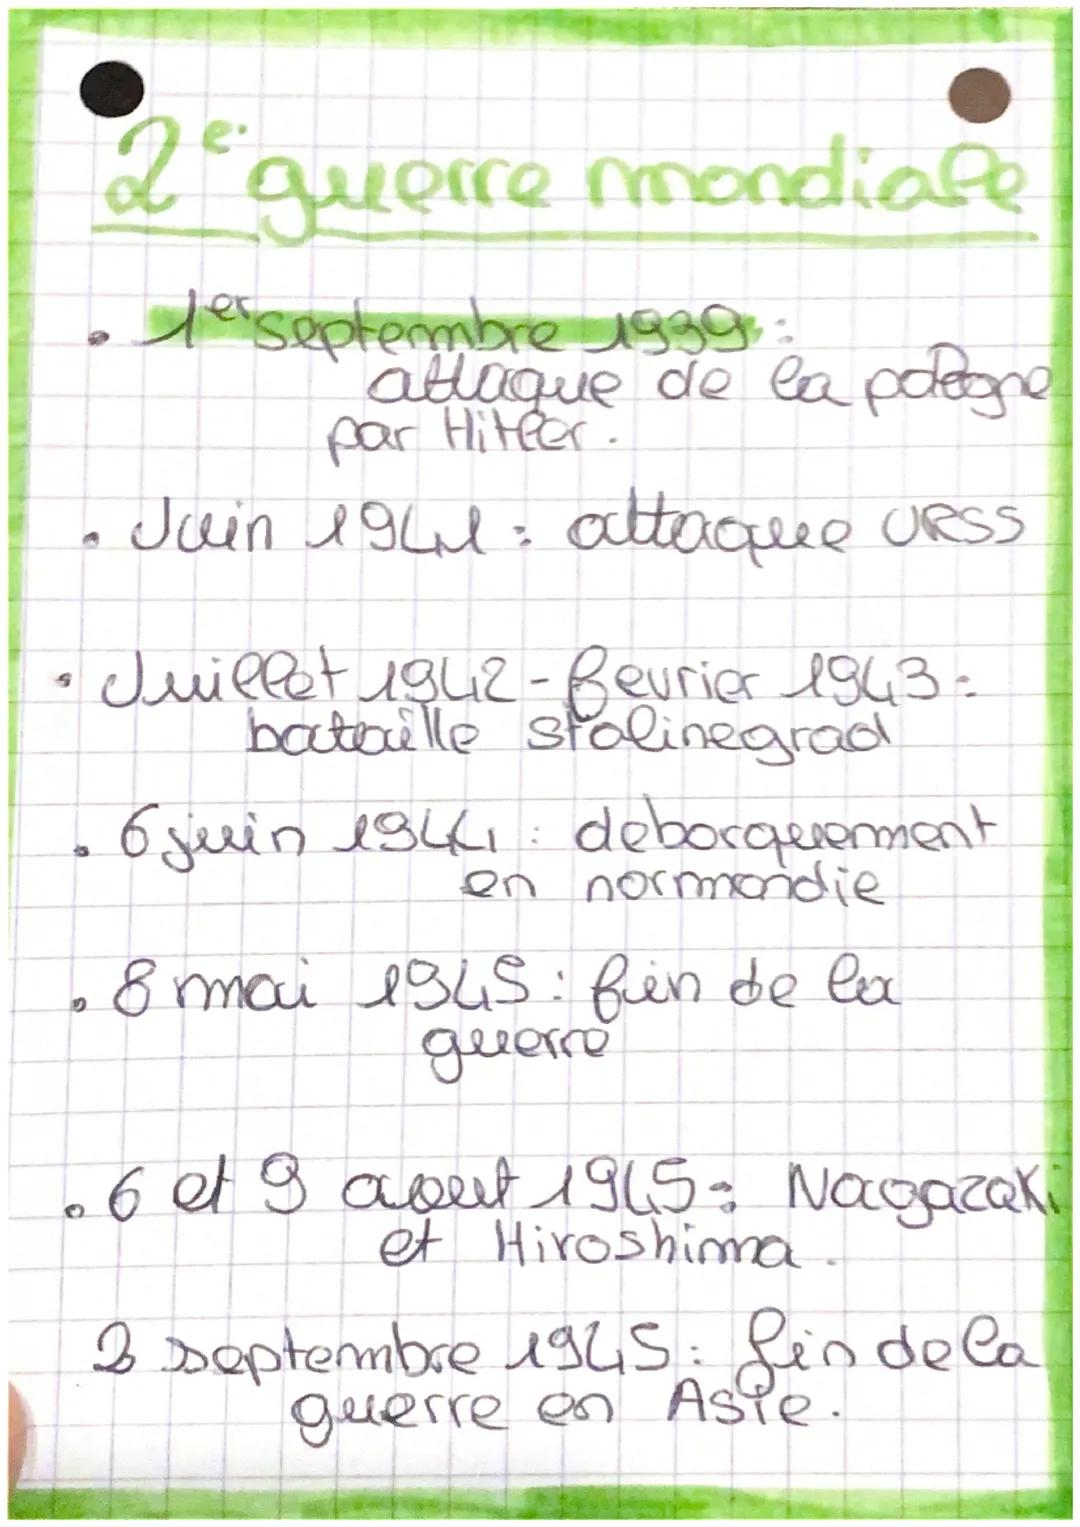 2e guerre mondiale
• 1er septembre 1939 :
attaque de la pologne
par Hitler.
• Juin 1941 : attaque URSS
• Juillet 1942 - fevrier 1943 :
bataille stalinegrad
• 6 juin 1944 : deborquement
en normandie
• 8 mai 1945 : fin de la
guerre
• 6 et 9 aout 1945 : Nagazaki
et Hiroshima.
2 septembre 1945 : fin de la
guerre en Asie.